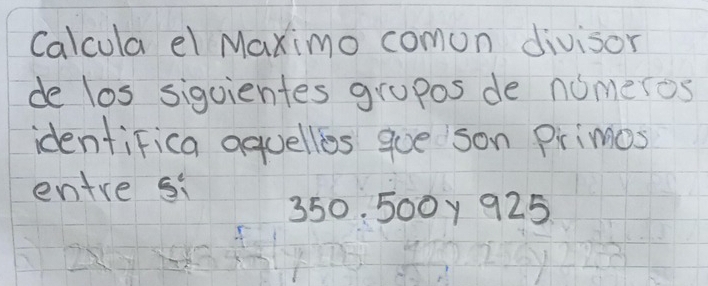 Calcula el Maximo comun divisor
de los siguientes grupos de números
identifica aquellos que son Primos
entre si
350. 500 y 925